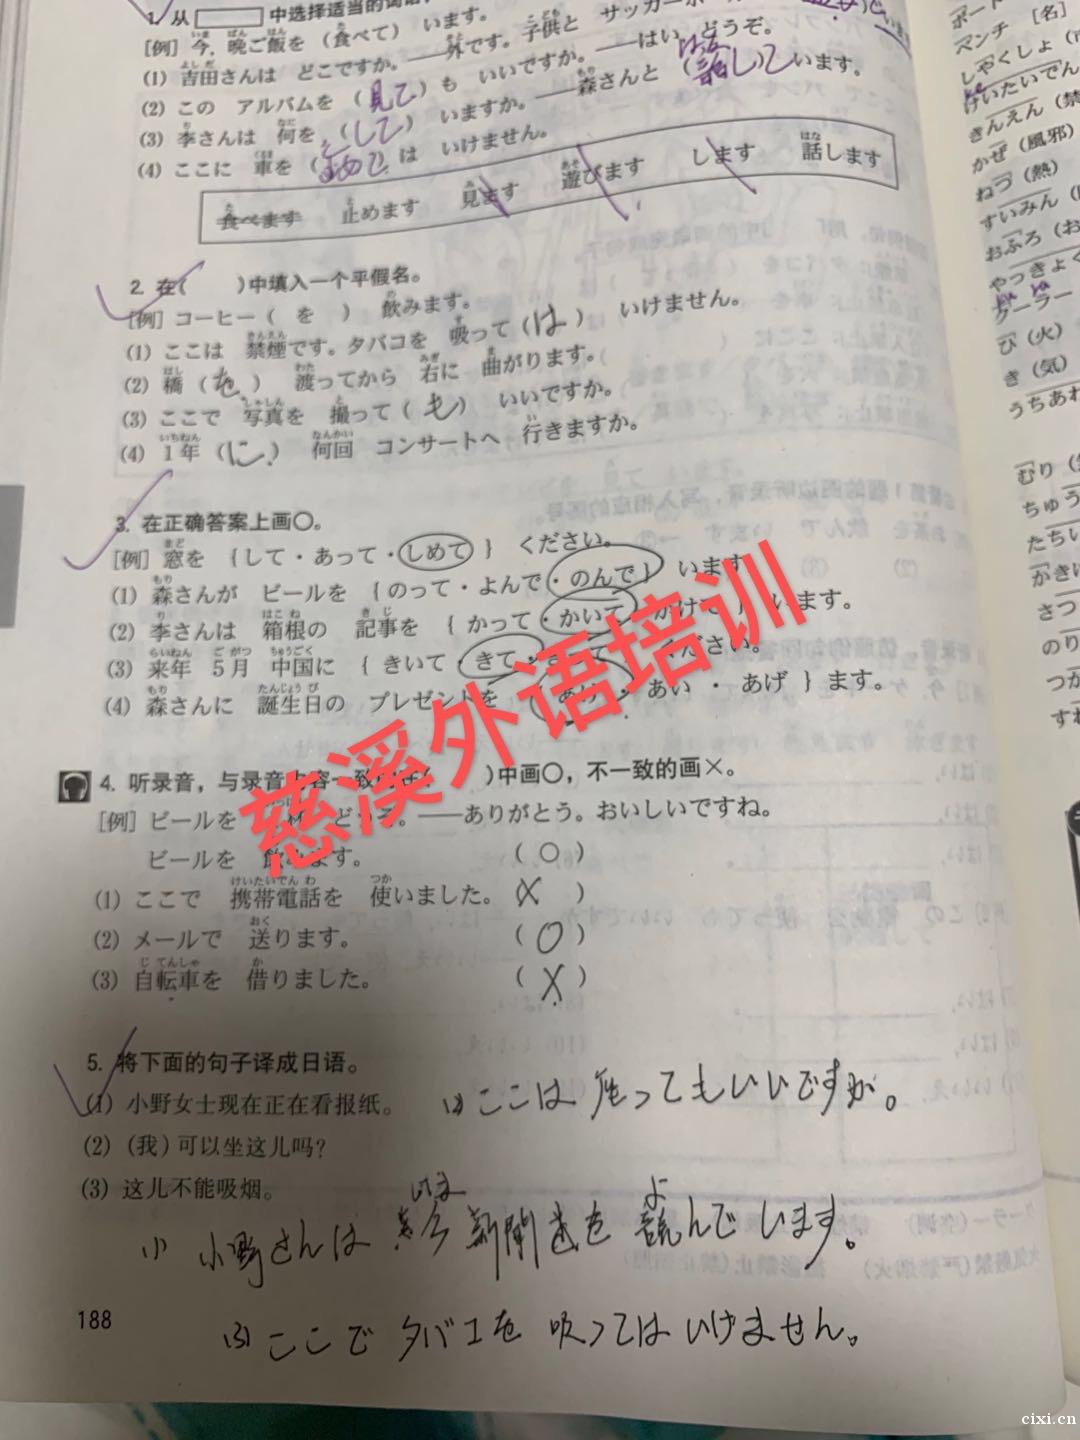 1. 从 中选择适当的词语,
[例] 今,晩ご飯を(食べて) います。
(1) 吉田さんは どこですか。——外です。子供と サッカーボー
(2) この アルバムを (見て) も いいですか。——はい、どうぞ。
(3) 李さんは 何を (して) いますか。——森さんと (話し)ています。
(4) ここに 車を ( は いけません。
食べます 止めます 見ます 遊びます します 話します
2. 在( )中填入一个平假名。
[例] コーヒー( を ) 飲みます。
(1) ここは 禁煙です。タバコを 吸って(は) いけません。
(2) 橋 (を) 渡ってから 右に 曲がります。
(3) ここで 写真を 撮って(も) いいですか。
(4) 1年 (に) 何回 コンサートへ 行きますか。
3. 在正确答案上画○。
[例] 窓を {して・あって・しめて} ください。
(1) 森さんが ビールを {のって・よんで・のんで} います
(2) 李さんは 箱根の 記事を {かって・かいて います。
(3) 来年 5月 中国に {きいて・きて ください。
(4) 森さんに 誕生日の プレゼントを あけ・あい・あげ}ます。
4. 听录音,与录音 容一致 ( )中画○,不一致的画×。
[例] ビールを どうぞ。——ありがとう。おいしいですね。
ビールを 飲みます。 (○)
(1) ここで 携帯電話を 使いました。(X)
(2) メールで 送ります。 (○)
(3) 自転車を 借りました。 (X)
5. 将下面的句子译成日语。
(1) 小野女士现在正在看报纸。
(2) (我)可以坐这儿吗?
(3) 这儿不能吸烟。
ここは 座ってもいいですか。
いま よ
(1) 小野さんは 今 新聞を 読んでいます。
(3) ここで タバコを 吸ってはいけません。
188
ボート
ランチ [名]
しゃくしょ
けいたいでん
きんえん(禁
かぜ(風邪)
ねつ(熱)
すいみん
おふろ(お
やっきょく
クーラー
ひ(火)
き(気)
うちあわ
むり
ちゅう
たちい
かきに
さつ
のり
つか
すね
慈溪外语培训
cixi.cn